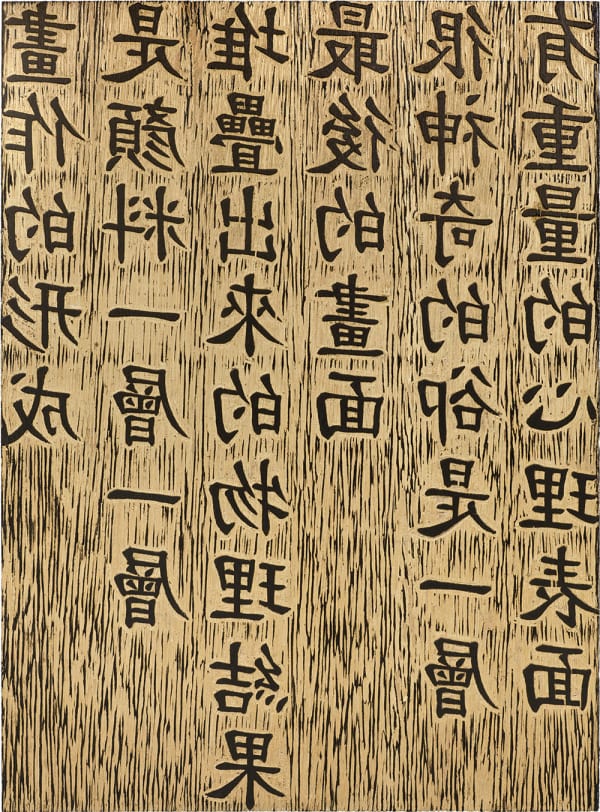 畫作的形成
是顏料一層一層
堆疊出來的物理結果
最後的畫面
很神奇的卻是一層
有重量的心理表面